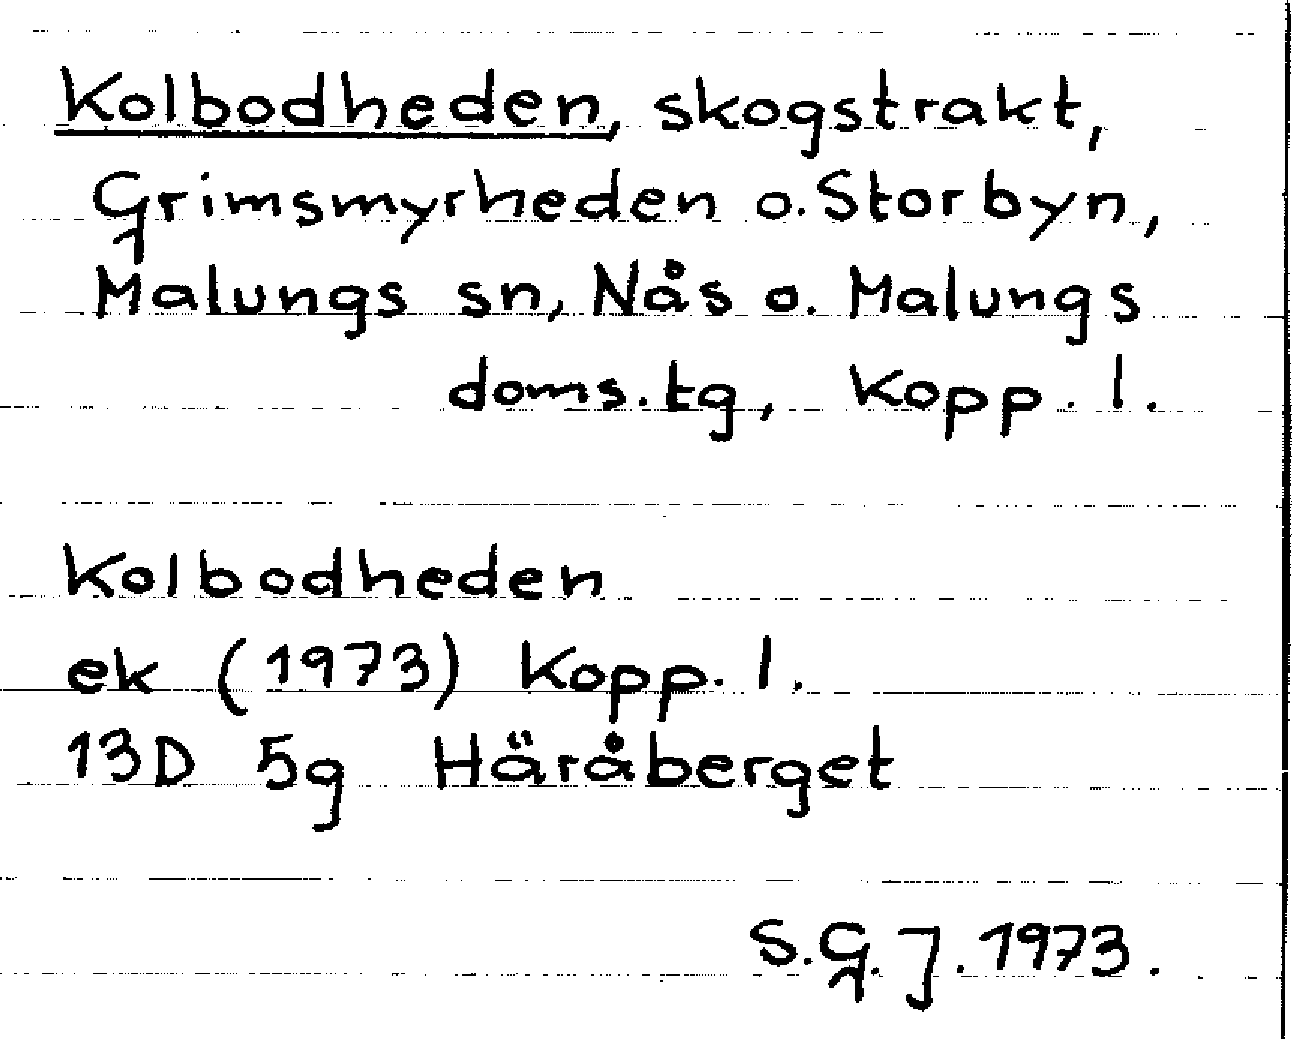 Kolbodheden, skogstrakt,
Grimsmyrheden o. Storbyn,
Malungs sn, Nås o. Malungs
doms.tg, Kopp. l.
Kolbodheden
ek (1973) Kopp. l.
13D 5g Häråberget
S.G.J. 1973.